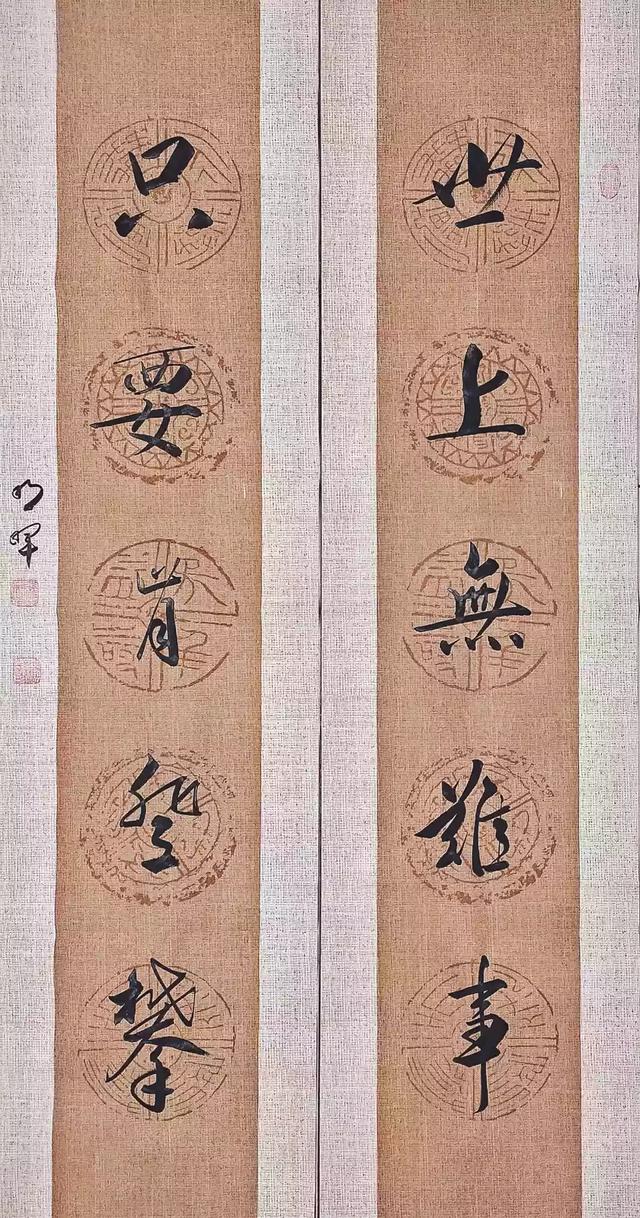 世上無難事
只要肯登攀
明暉